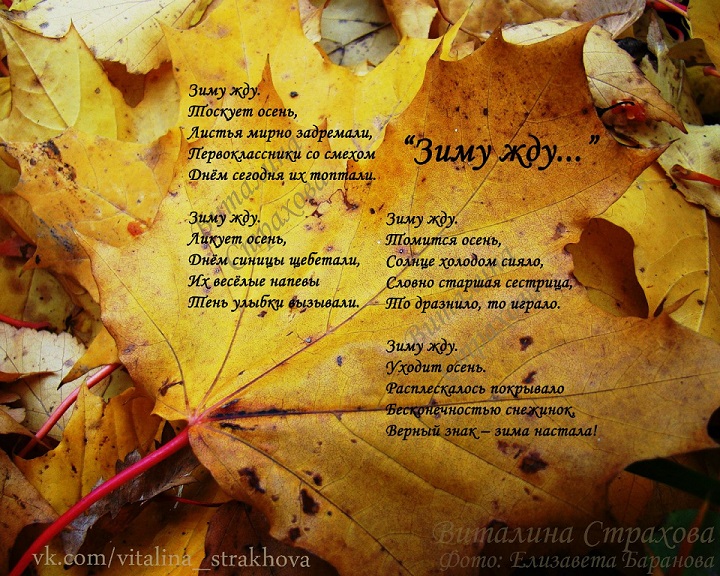 “Зиму жду...”
Зиму жду.
Тоскует осень,
Листья мирно задремали,
Первоклассники со смехом
Днём сегодня их топтали.
Зиму жду.
Ликует осень,
Днём синицы щебетали,
Их весёлые напевы
Тень улыбки вызывали.
Зиму жду.
Томится осень,
Солнце холодом сияло,
Словно старшая сестрица,
То дразнило, то играло.
Зиму жду.
Уходит осень.
Расплескалось покрывало
Бесконечностью снежинок,
Верный знак – зима настала!
Виталина
Страхова
Виталина
Виталина Страхова
Фото: Елизавета Баранова
vk.com/vitalina_strakhova